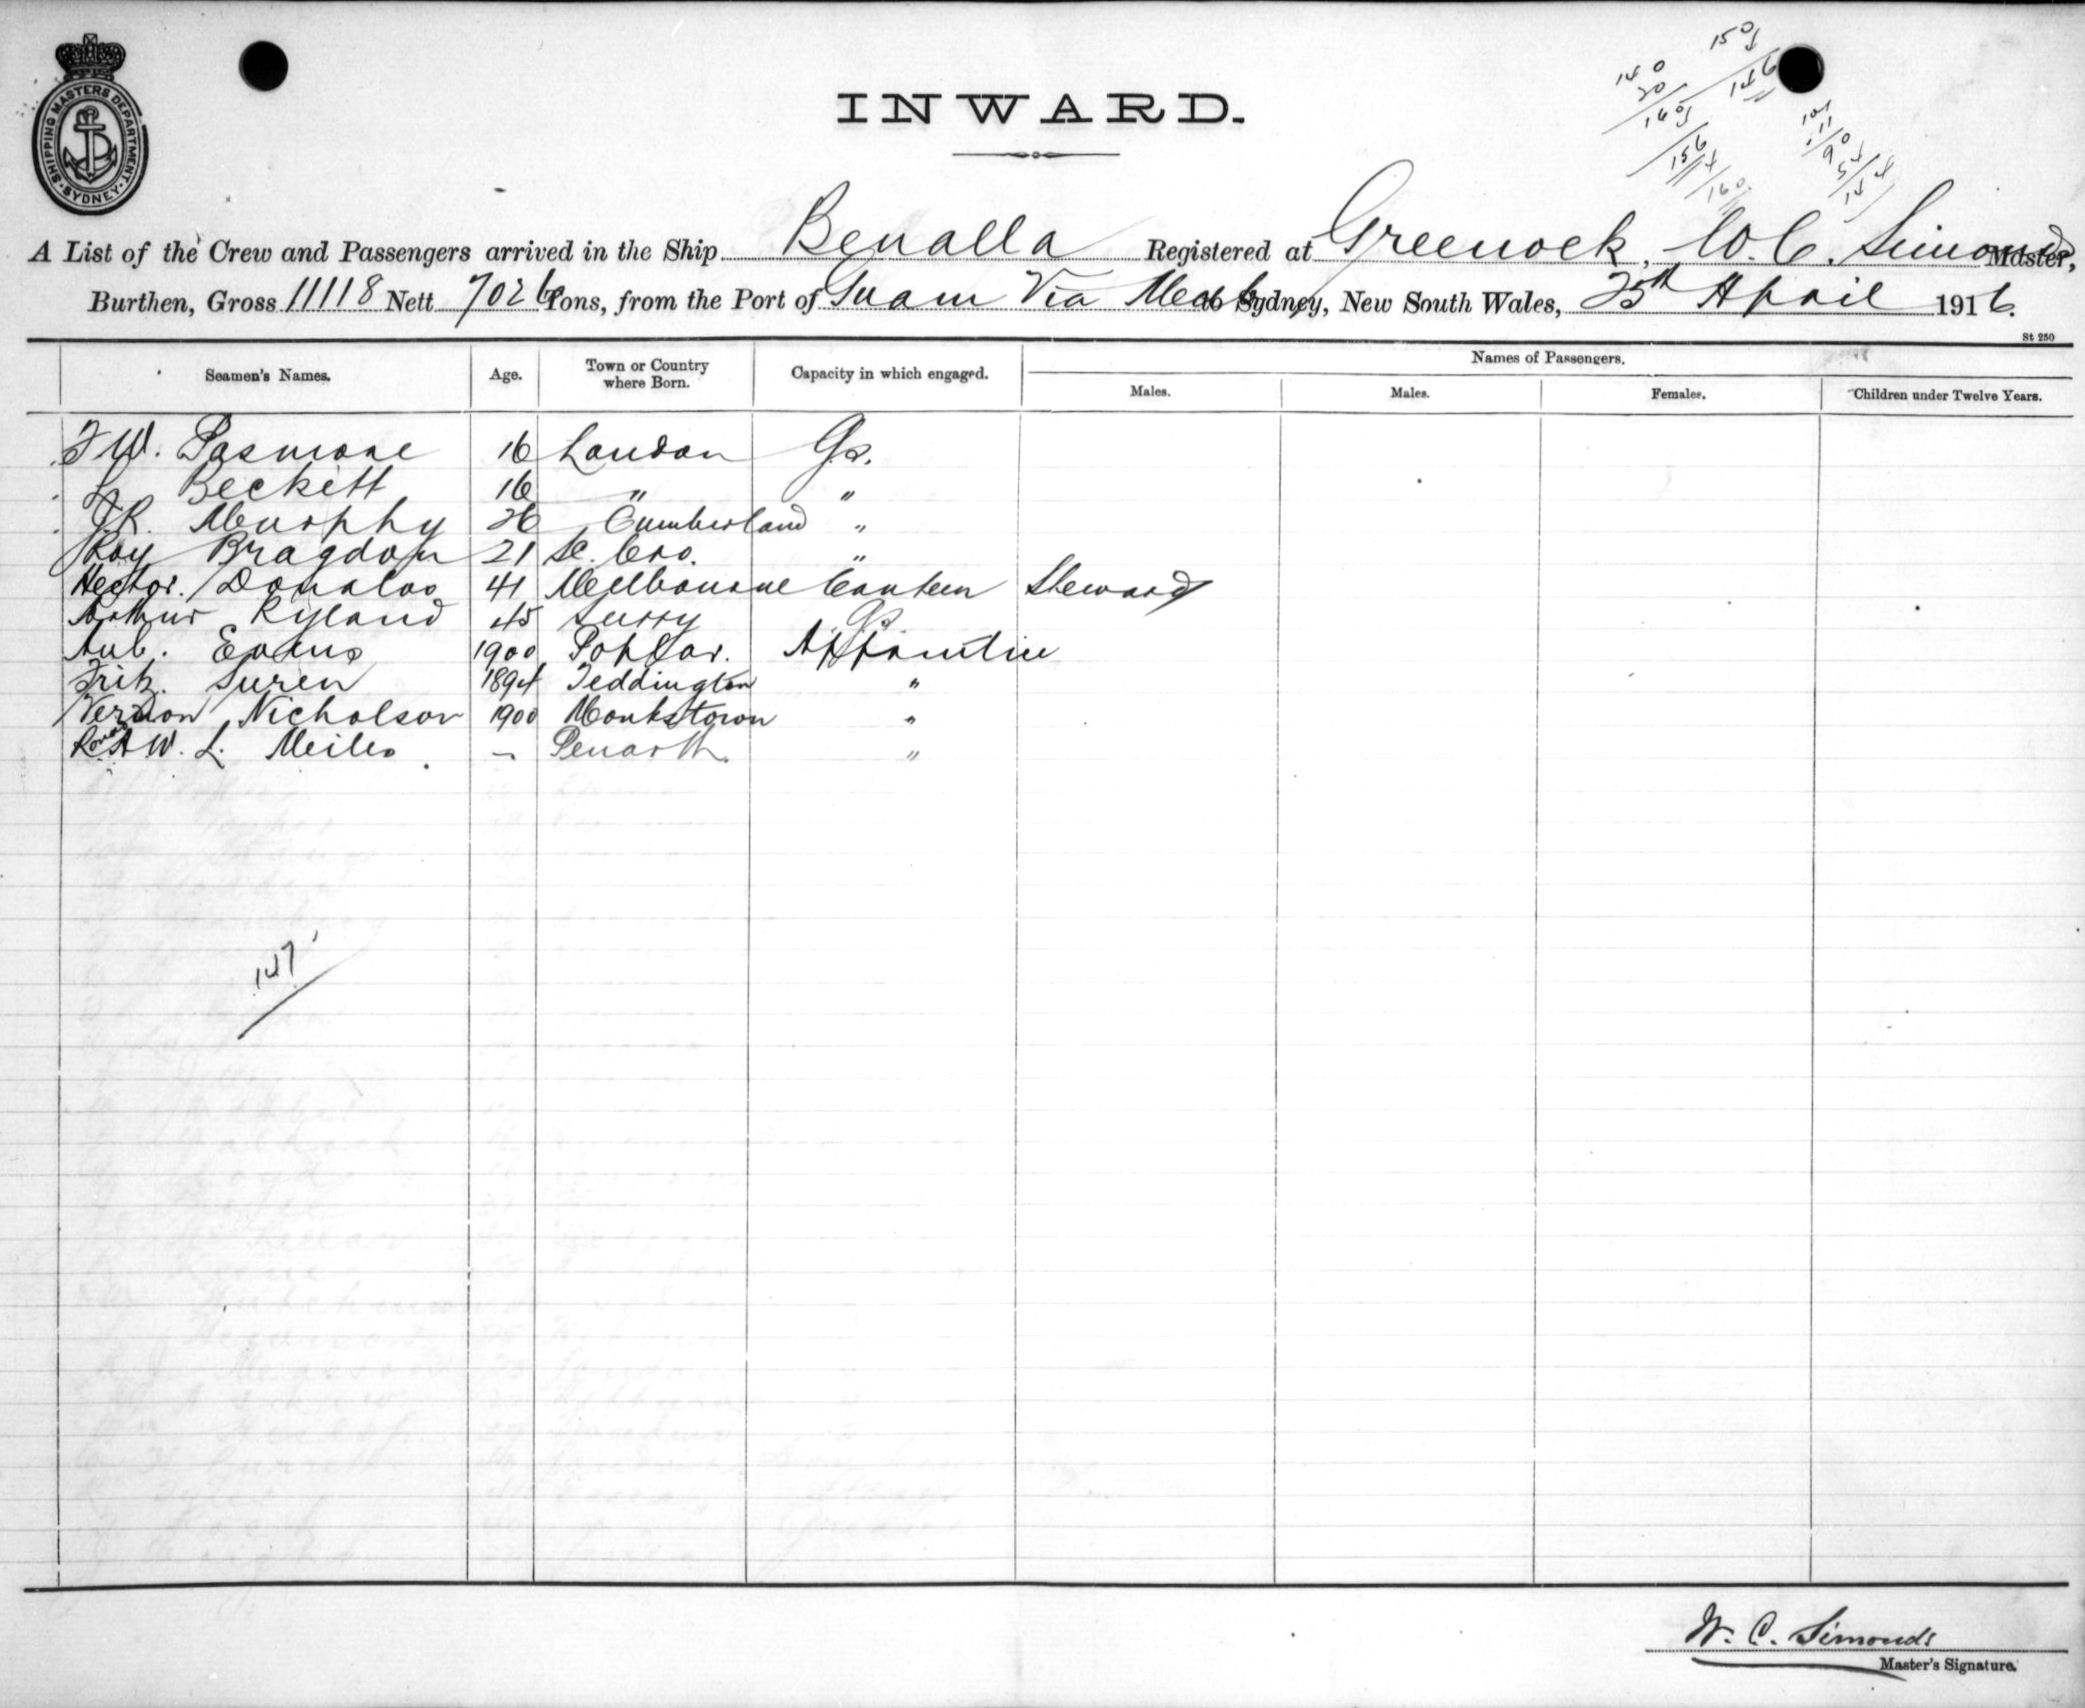 SHIPPING MASTERS DEPARTMENT
SYDNEY
INWARD.
150
146
140
20
160
156
160
A List of the Crew and Passengers arrived in the Ship Benalla Registered at Greenock, W. C. Simonds Master,
Burthen, Gross 11118 Nett 7026 Tons, from the Port of Via Melb to Sydney, New South Wales, 25th April 1916.
St 250
Seamen's Names. Age. Town or Country where Born. Capacity in which engaged. Names of Passengers.
Males. Males. Females. Children under Twelve Years.
F W. Pasmore 16 London G.S.
Beckett 16 " "
J.R. Murphy 26 Cumberland "
Roy Bragdon 21 "
Hector. 41 Melbourne Canteen Steward
Arthur Ryland 45 Surry Gs
Aub. Evans 1900 Poplar. Apprentice
Fritz. Suren 1894 Teddington "
Vernon Nicholson 1900 Monkstown "
W. L. Meiles - Penarth. "
147
W. C. Simonds
Master's Signature.